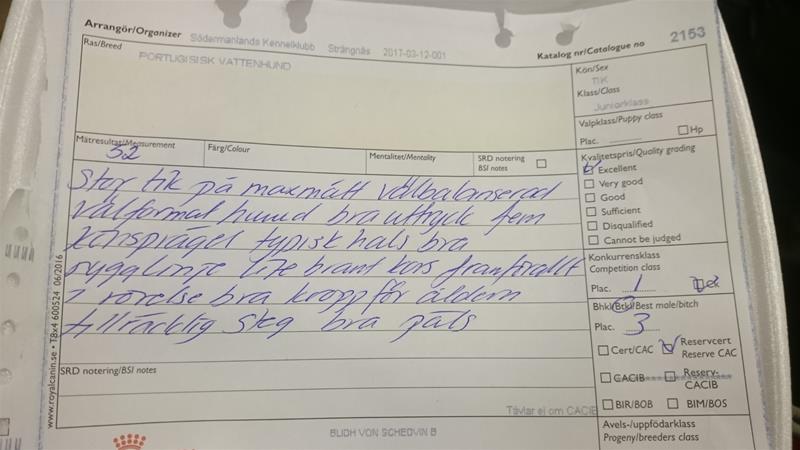 Arrangör/Organizer Södermanlands Kennelklubb Strängnäs 2017-03-12-001
Katalog nr/Catalogue no 2153
Ras/Breed
PORTUGISISK VATTENHUND
Kön/Sex
TIK
Klass/Class
Juniorklass
Valpklass/Puppy class
Plac. Hp
Mätresultat/Measurement
52
Färg/Colour
Mentalitet/Mentality
SRD notering
BSI notes
Stor tik på maxmått välbalanserad
välformat huvud bra uttryck fem
könsprägel typisk hals bra
rygglinje lite brant kors framförallt
i rörelse bra kropp för åldern
tillräcklig steg bra päls
Kvalitetspris/Quality grading
Excellent
Very good
Good
Sufficient
Disqualified
Cannot be judged
Konkurrensklass
Competition class
Plac. 1
Bhkl/Btkl/Best male/bitch
Plac. 3
Cert/CAC
Reservcert
Reserve CAC
CACIB
Reserv-
CACIB
BIR/BOB
BIM/BOS
Avels-/uppfödarklass
Progeny/breeders class
SRD notering/BSI notes
Tävlar ej om CACIB
BLIDH VON SCHEDVIN B
www.royalcanin.se • T8x4 600524 06/2016